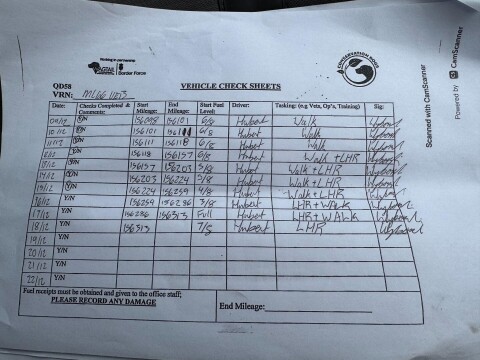 Working in partnership
AGTAE
Border Force
CONSERVATION DOGS
QD58
VEHICLE CHECK SHEETS
VRN:
Date: Checks Completed & Comments: Start Mileage: End Mileage: Start Fuel Level: Driver: Tasking: (e.g Vets, Op's, Training) Sig:
09/12 Y/N 156098 156101 6/8 Hubert Walk
10/12 Y/N 156101 6/8 Hubert Walk
11/12 Y/N 156111 156118 6/8 Hubert Walk
12/12 Y/N 156118 156157 6/8 Hubert Walk + LHR
13/12 Y/N 156157 156203 5/8 Hubert Walk + LHR
14/12 Y/N 156203 156224 5/8 Hubert Walk + LHR
15/12 Y/N 156224 156259 4/8 Hubert Walk + LHR
16/12 Y/N 156259 156286 3/8 Hubert LHR + Walk
17/12 Y/N 156286 156313 Full Hubert LHR + WALK
18/12 Y/N 156313 7/8 Hubert LHR
19/12 Y/N
20/12 Y/N
21/12 Y/N
22/12 Y/N
Fuel receipts must be obtained and given to the office staff;
PLEASE RECORD ANY DAMAGE
End Mileage:
Scanned with CamScanner
Powered by CS CamScanner